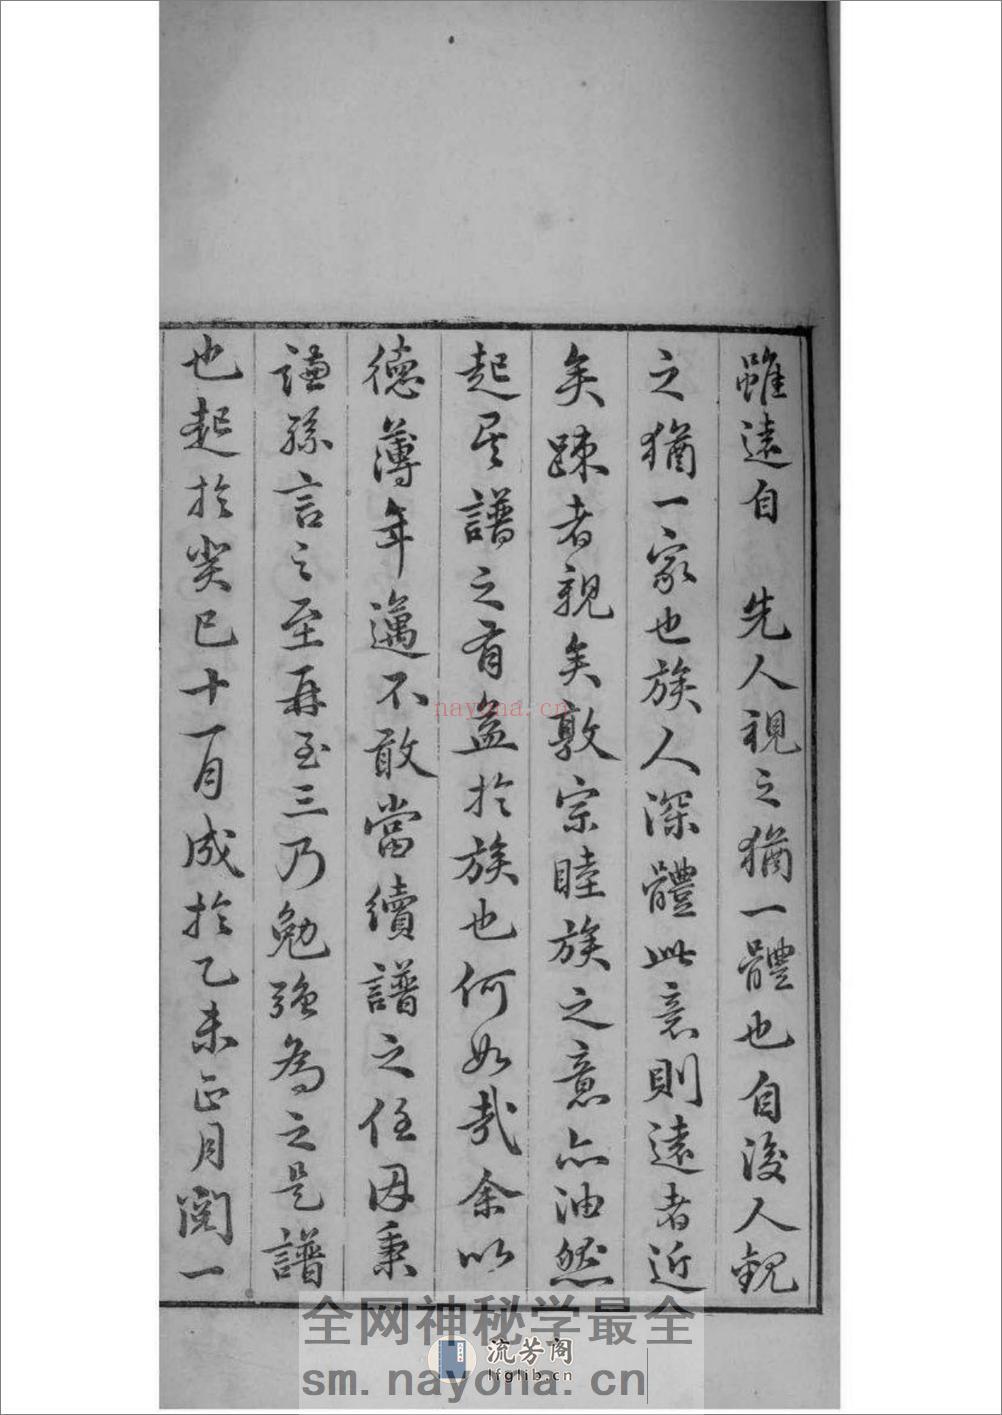 雖遠自　先人視之猶一體也自後人觀
之猶一家也族人深體此意則遠者近
矣踈者親矣敦宗睦族之意亦油然
起矣譜之有益於族也何如哉余以
德薄年邁不敢當續譜之任因秉
謙孫言之至再至三乃勉強為之是譜
也起於癸巳十一月成於乙未正月閱一
nayona.cn
全网神秘学最全
流芳阁
lfglib.cn
sm.nayona.cn